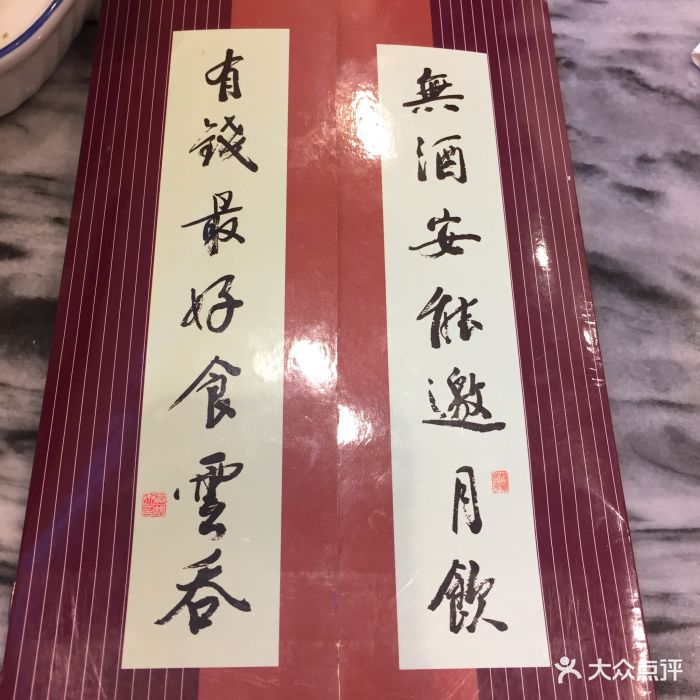 無酒安能邀月飲
有錢最好食雲吞
大众点评